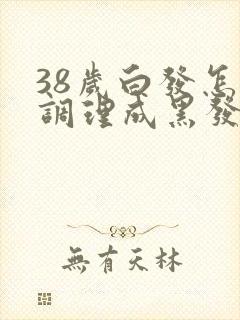 38歲白發怎
調理成黑發
無有天林